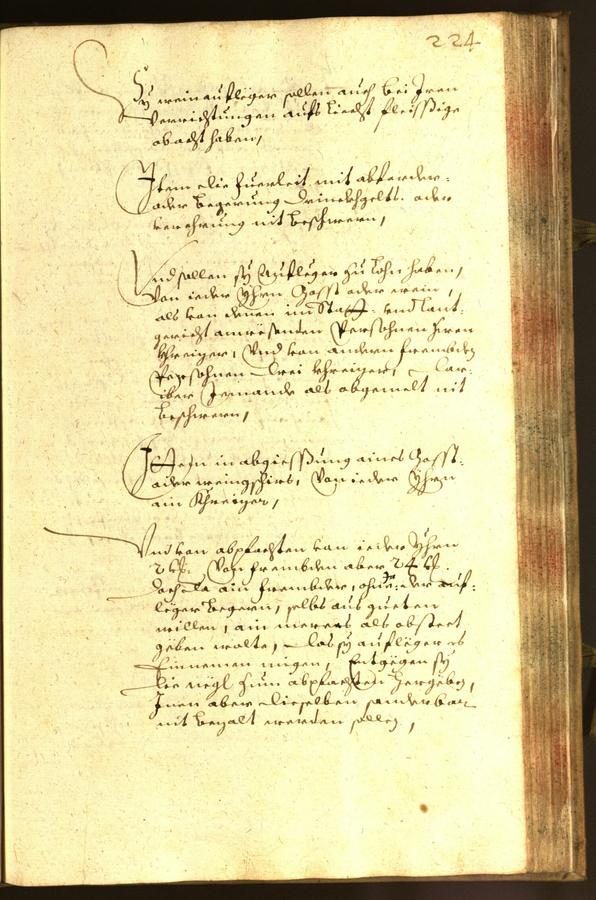 224
Sy weinaufleger sollen auch bei Iren
verrichtungen aufs liechst fleissige
obacht haben,
Item die fuerleit mit abforder-
oder begerung Drinckhgelts. oder
verehrung nit beschwern,
Und sollen sy Aufleger zu lohn haben,
von ieder Yhrn Gosst oder wein,
als von denen in Statt- und Lant-
gericht anwesenden Persohnen
khreizer, Und von andern frembden
Persohnen drei khreizer, Dar-
iber Iemande als obgemelt nit
beschwern,
Item in abgiessung aines Gosst-
oder weingschirs, Von ieder Yhrn
ain Khreizer,
Und von abpfachten von ieder Yhrn
2 kr. Von frembden aber 24 kr.
Doch da ain frembder, ohne der auf-
leger begern, selbs aus gueten
willen, ain merers als obsteet
geben wolte, das sy aufleger es
einnemen migen, Entgegen sy
die negl zum abpfachten hergeben,
Inen aber dieselben sonderbar
nit bezalt werden sollen,